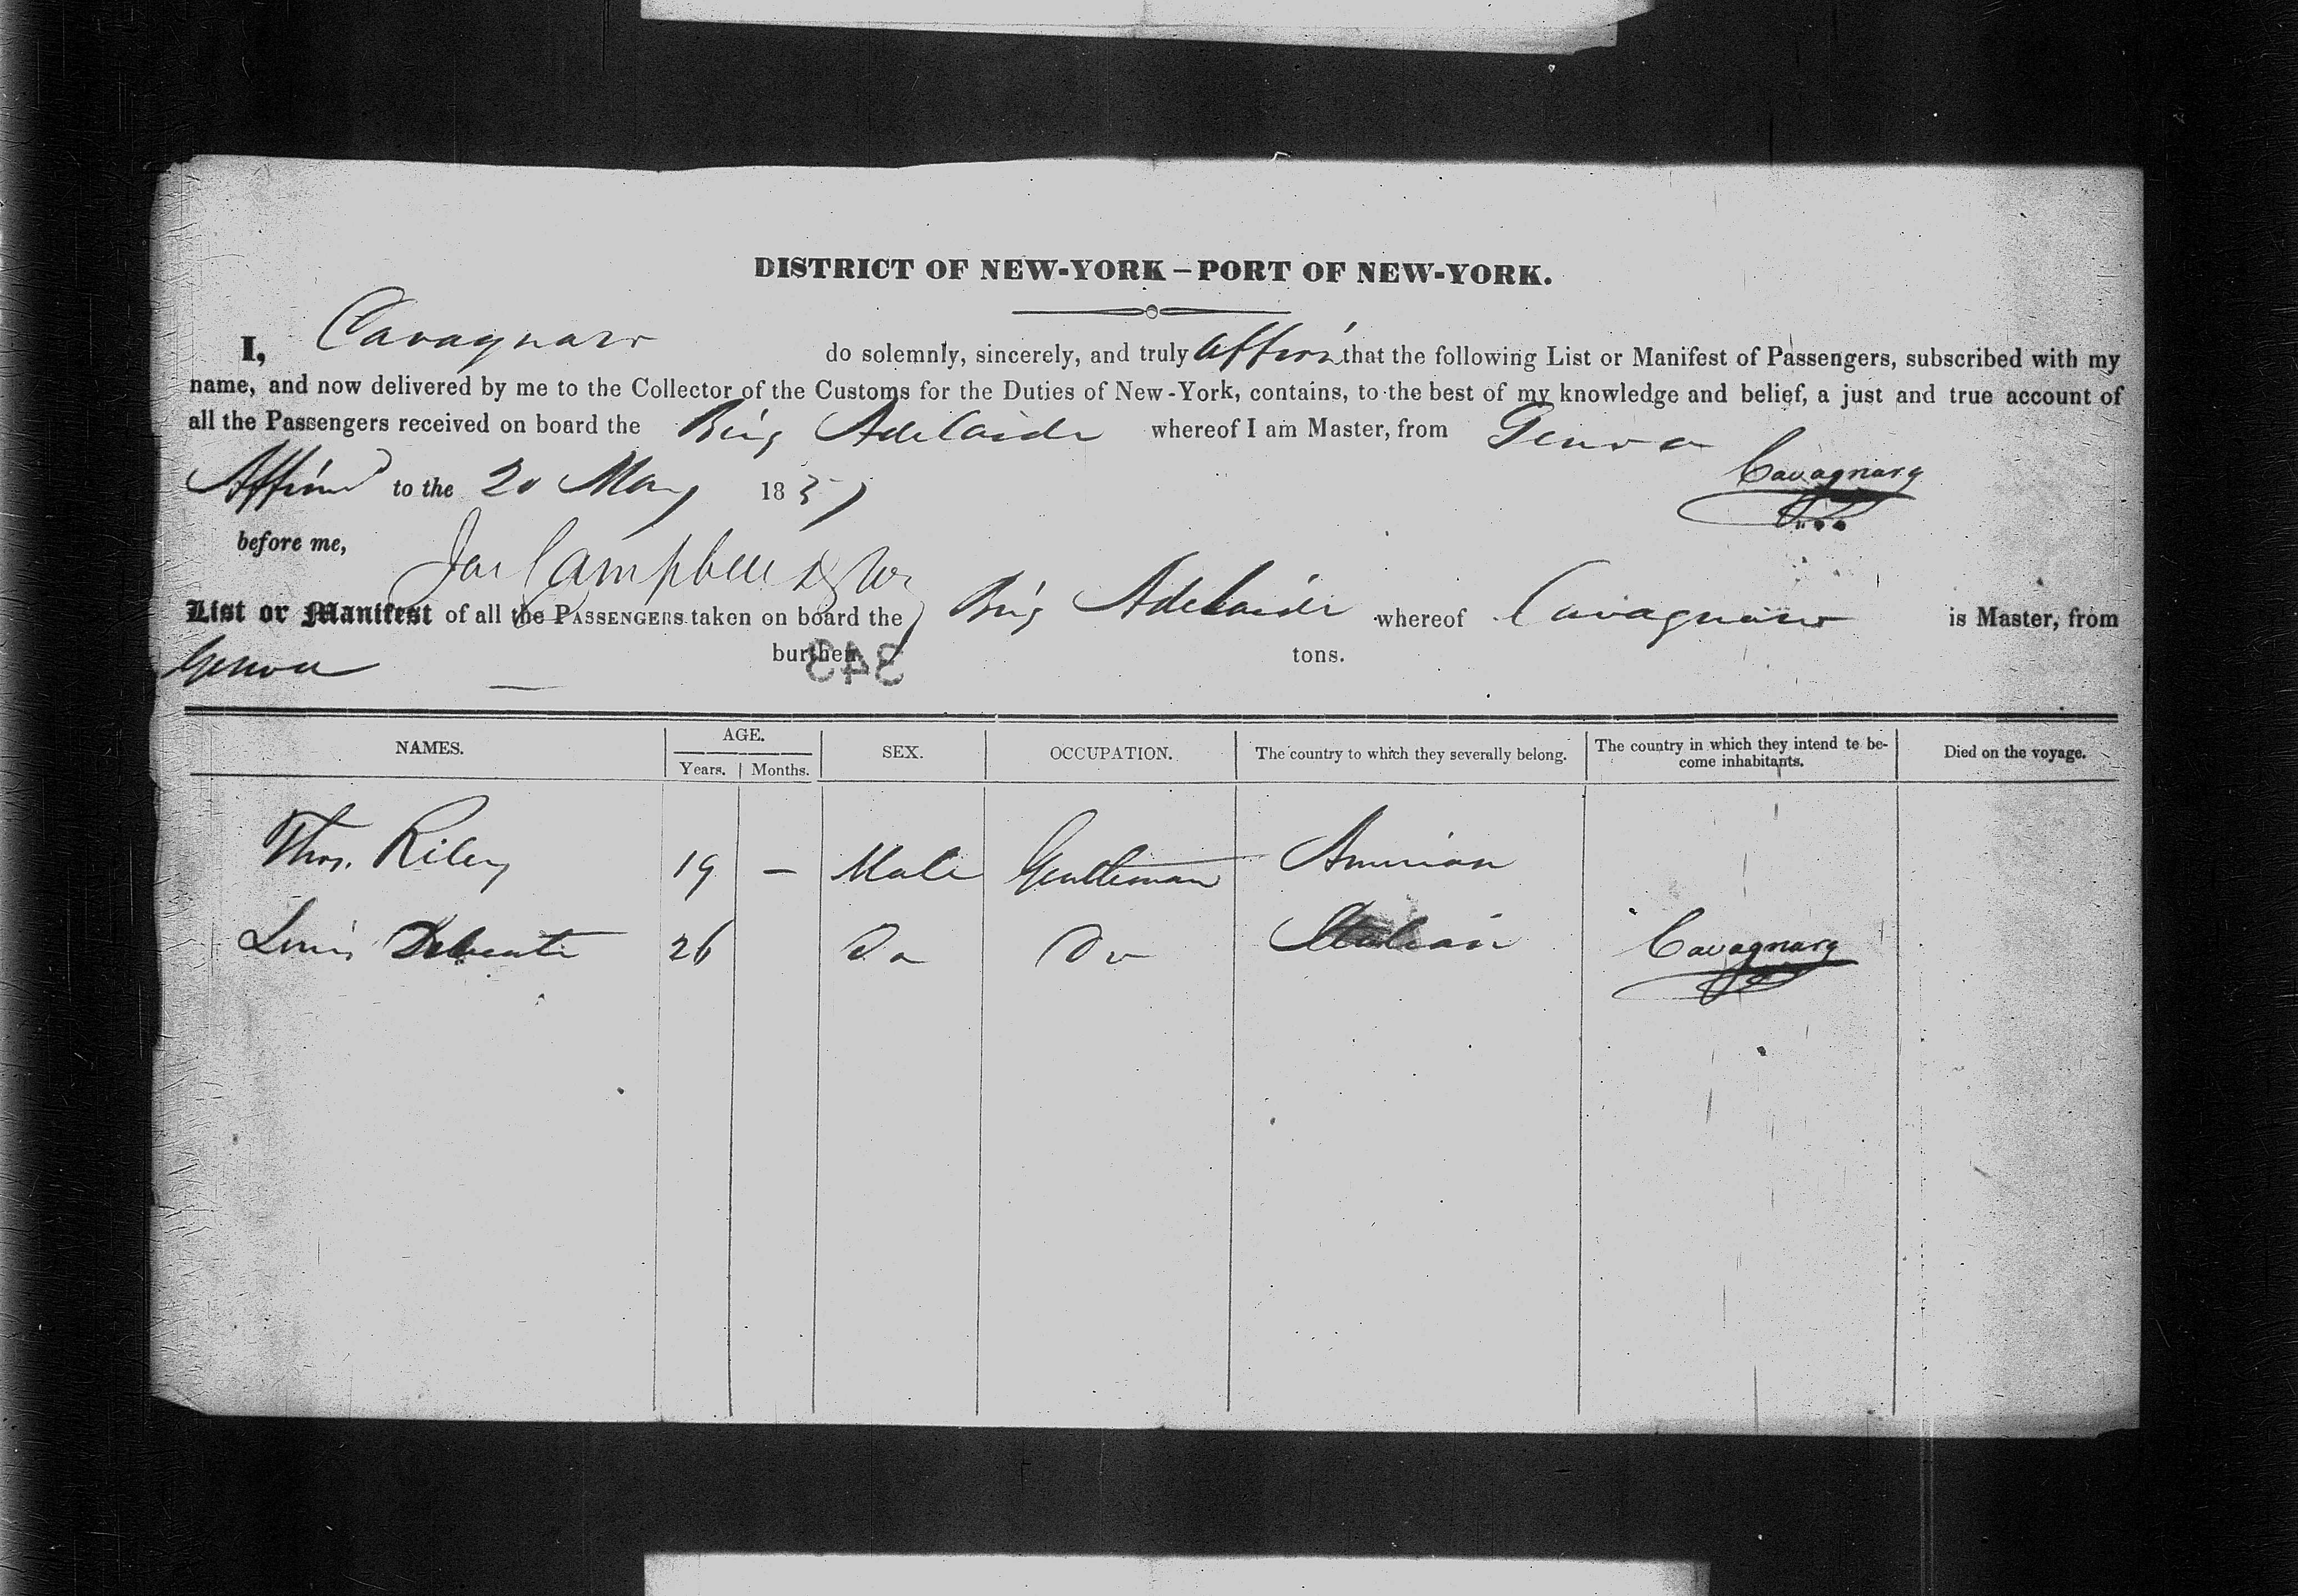 DISTRICT OF NEW-YORK – PORT OF NEW-YORK.
I, Cavagnaro do solemnly, sincerely, and truly affirm that the following List or Manifest of Passengers, subscribed with my
name, and now delivered by me to the Collector of the Customs for the Duties of New-York, contains, to the best of my knowledge and belief, a just and true account of
all the Passengers received on board the Brig Adelaide whereof I am Master, from Genoa
Affirmd to the 20 May 1837 Cavagnaro
before me, Jas Campbell
List or Manifest of all the PASSENGERS taken on board the Brig Adelaide whereof Cavagnaro is Master, from
Genoa burthen 343 tons.
NAMES. AGE. Years. Months. SEX. OCCUPATION. The country to which they severally belong. The country in which they intend to be- come inhabitants. Died on the voyage.
Thos. Riley 19 – Male Gentleman American
Louis 26 Do Do Italian Cavagnaro